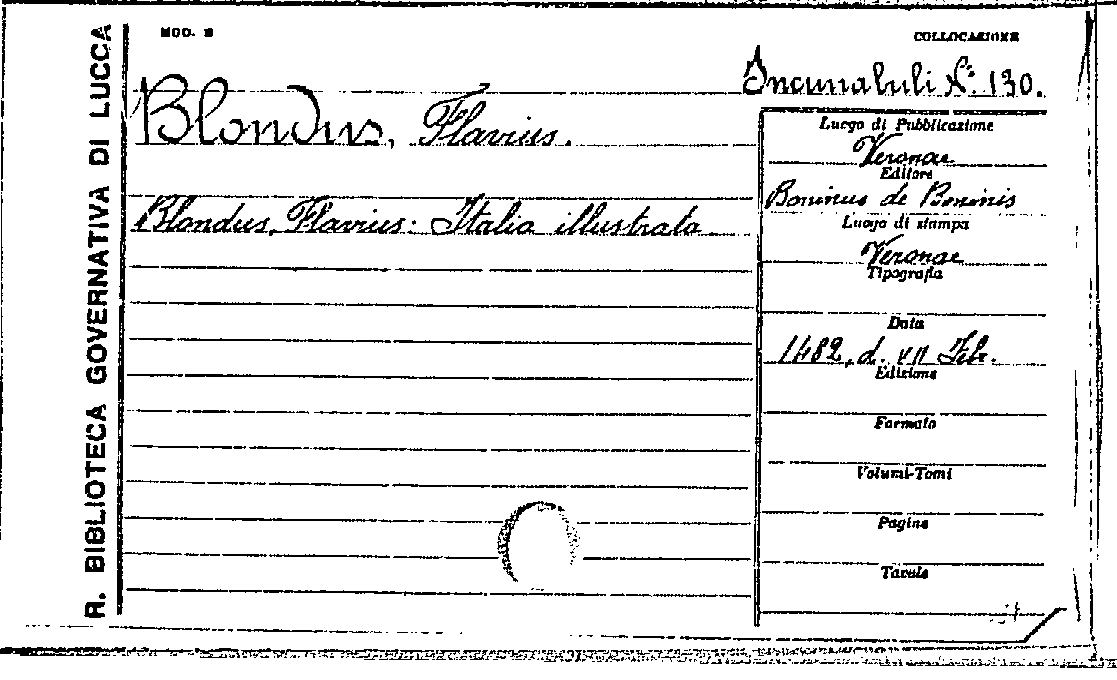 R. BIBLIOTECA GOVERNATIVA DI LUCCA
MOD. B
COLLOCAZIONE
Incunabuli N. 130.
Blondus, Flavius.
Blondus, Flavius: Italia illustrata
Luogo di Pubblicazione
Veronae
Editore
Boninus de Boninis
Luogo di stampa
Veronae
Tipografia
Data
1482, d. VII Feb.
Edizione
Formato
Volumi-Tomi
Pagine
Tavole